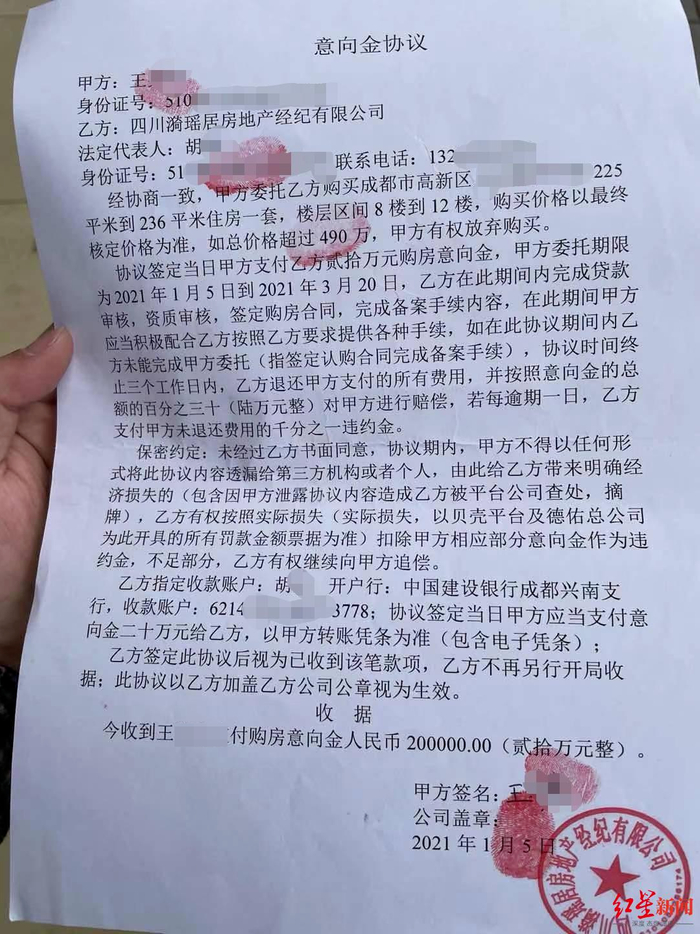 意向金协议
甲方：王
身份证号：510
乙方：四川漪瑶居房地产经纪有限公司
法定代表人：胡
身份证号：51 联系电话：132
经协商一致，甲方委托乙方购买成都市高新区 225
平米到 236 平米住房一套，楼层区间 8 楼到 12 楼，购买价格以最终
核定价格为准，如总价格超过 490 万，甲方有权放弃购买。
协议签定当日甲方支付乙方贰拾万元购房意向金，甲方委托期限
为 2021 年 1 月 5 日到 2021 年 3 月 20 日，乙方在此期间内完成贷款
审核，资质审核，签定购房合同，完成备案手续内容，在此期间甲方
应当积极配合乙方按照乙方要求提供各种手续，如在此协议期间内乙
方未能完成甲方委托（指签定认购合同完成备案手续），协议时间终
止三个工作日内，乙方退还甲方支付的所有费用，并按照意向金的总
额的百分之三十（陆万元整）对甲方进行赔偿，若每逾期一日，乙方
支付甲方未退还费用的千分之一违约金。
保密约定：未经过乙方书面同意，协议期内，甲方不得以任何形
式将此协议内容透漏给第三方机构或者个人，由此给乙方带来明确经
济损失的（包含因甲方泄露协议内容造成乙方被平台公司查处，摘
牌），乙方有权按照实际损失（实际损失，以贝壳平台及德佑总公司
为此开具的所有罚款金额票据为准）扣除甲方相应部分意向金作为违
约金，不足部分，乙方有权继续向甲方追偿。
乙方指定收款账户：胡 开户行：中国建设银行成都兴南支
行，收款账户：6214 3778；协议签定当日甲方应当支付意
向金二十万元给乙方，以甲方转账凭条为准（包含电子凭条）；
乙方签定此协议后视为已收到该笔款项，乙方不再另行开局收
据；此协议以乙方加盖乙方公司公章视为生效。
收 据
今收到王 付购房意向金人民币 200000.00（贰拾万元整）。
甲方签名：王
公司盖章：
2021 年 1 月 5 日
漪瑶居房地产经纪有限公司
红星新闻